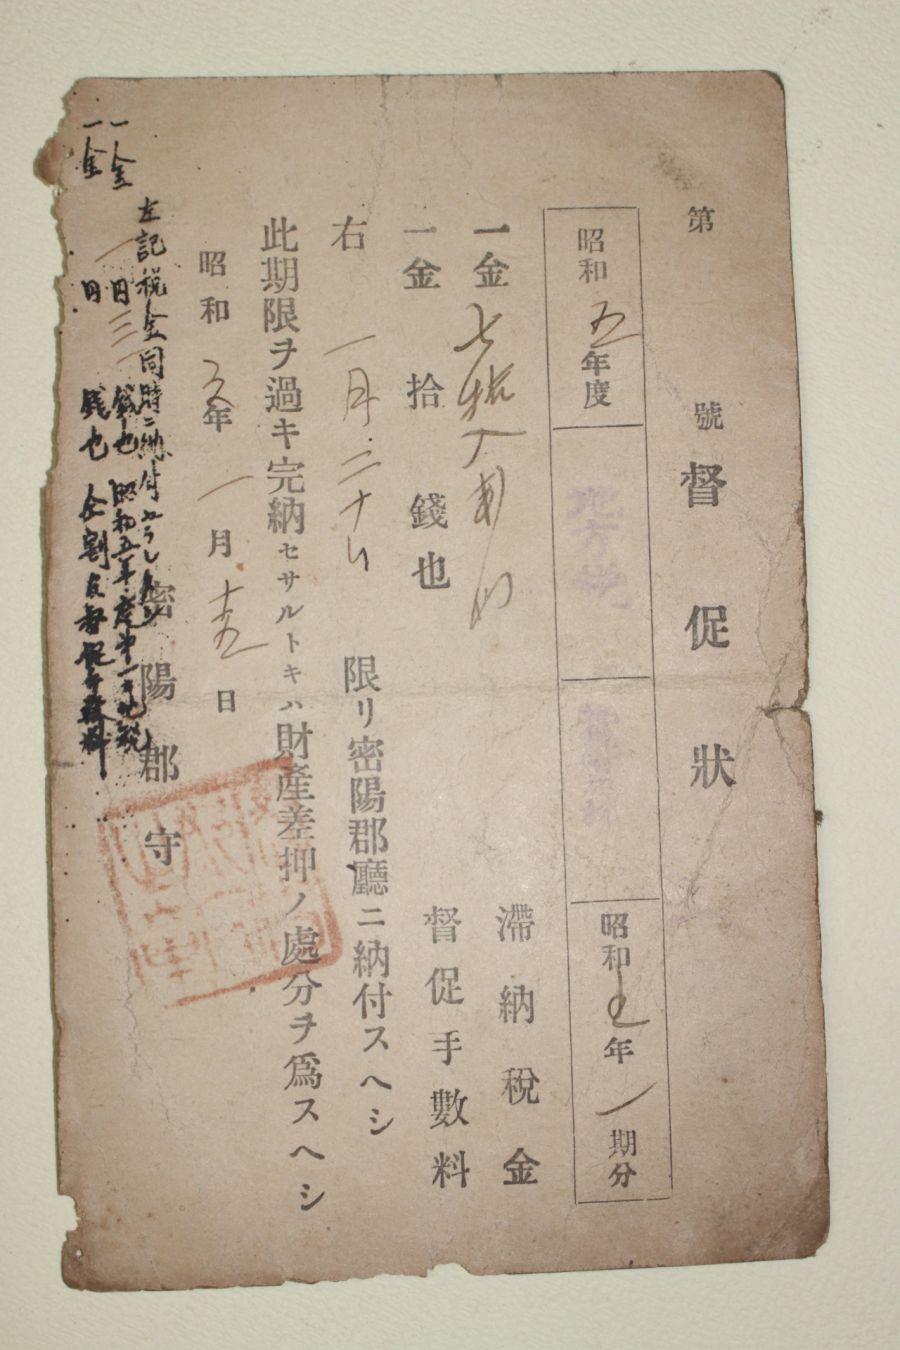 第 號 督促狀
昭和五年度 地方稅 昭和 年 期分
一金七拾六 滯納稅金
一金拾錢也 督促手數料
右 一月二十日 限リ密陽郡廳ニ納付スヘシ
此期限ヲ過キ完納セサルトキハ財產差押ノ處分ヲ爲スヘシ
昭和 年一月十五日
密陽郡守
左記税金同時ニ納付セラレ
一金 一円三 錢也 昭和五年度第一 地税
一金 円 錢也 督促手數料